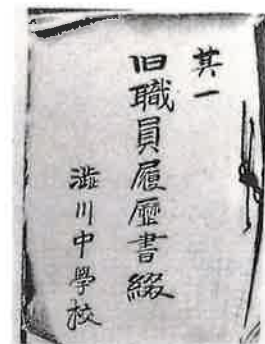 其一
旧職員履歴書綴
澁川中學校